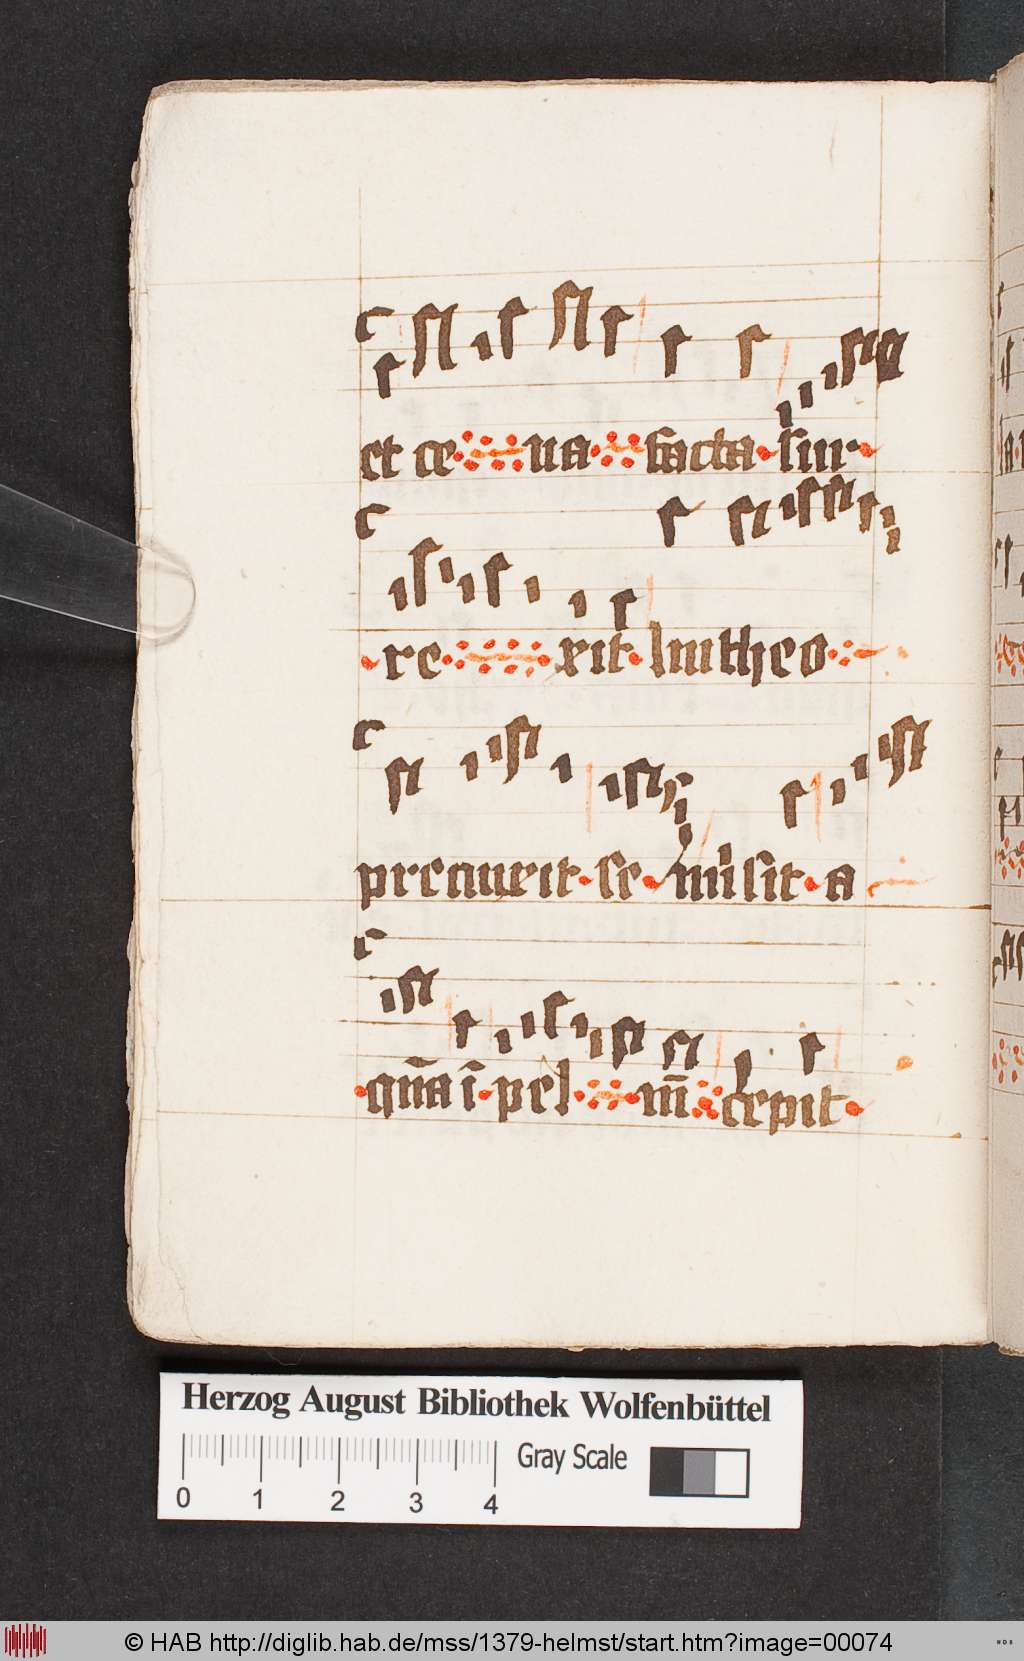 et ce ua facta sur
re xit lintheo
precinxit se misit a
qua i pel m cepit
Herzog August Bibliothek Wolfenbüttel
Gray Scale
0 1 2 3 4
© HAB http://diglib.hab.de/mss/1379-helmst/start.htm?image=00074